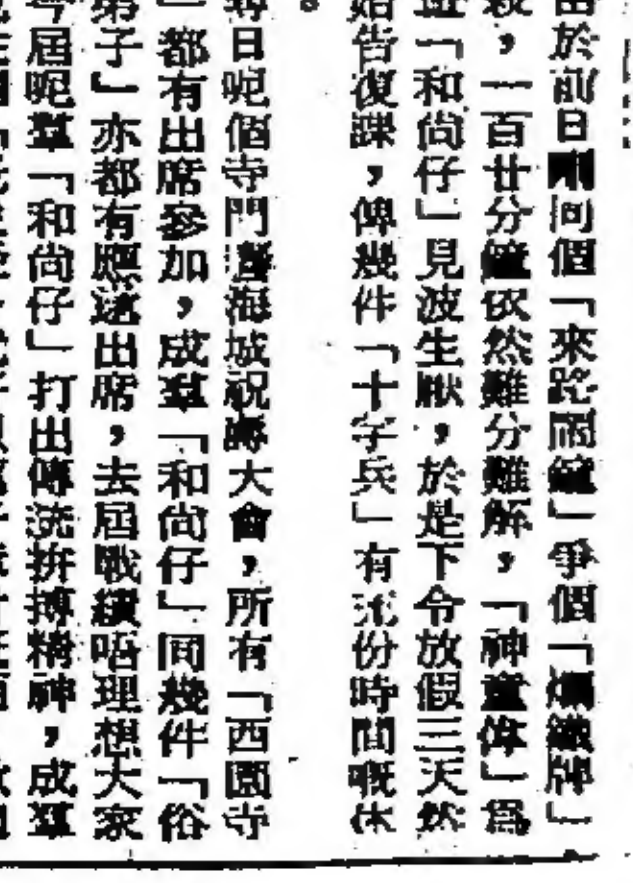 由於前日剛同個「來路雨鐘」爭個「爛鐵牌」
殺，一百廿分鐘依然難分難解，「神童偉」爲
班「和尚仔」見波生厭，於是下令放假三天然
始告復課，俾幾件「十字兵」有充份時間嘅休
。
尋日呢個寺門濠海城祝壽大會，所有「西園寺
」都有出席參加，成羣「和尚仔」同幾件「俗
弟子」亦都有應邀出席，去屆戰績唔理想大家
今屆呢羣「和尚仔」打出傳統拚搏精神，成羣